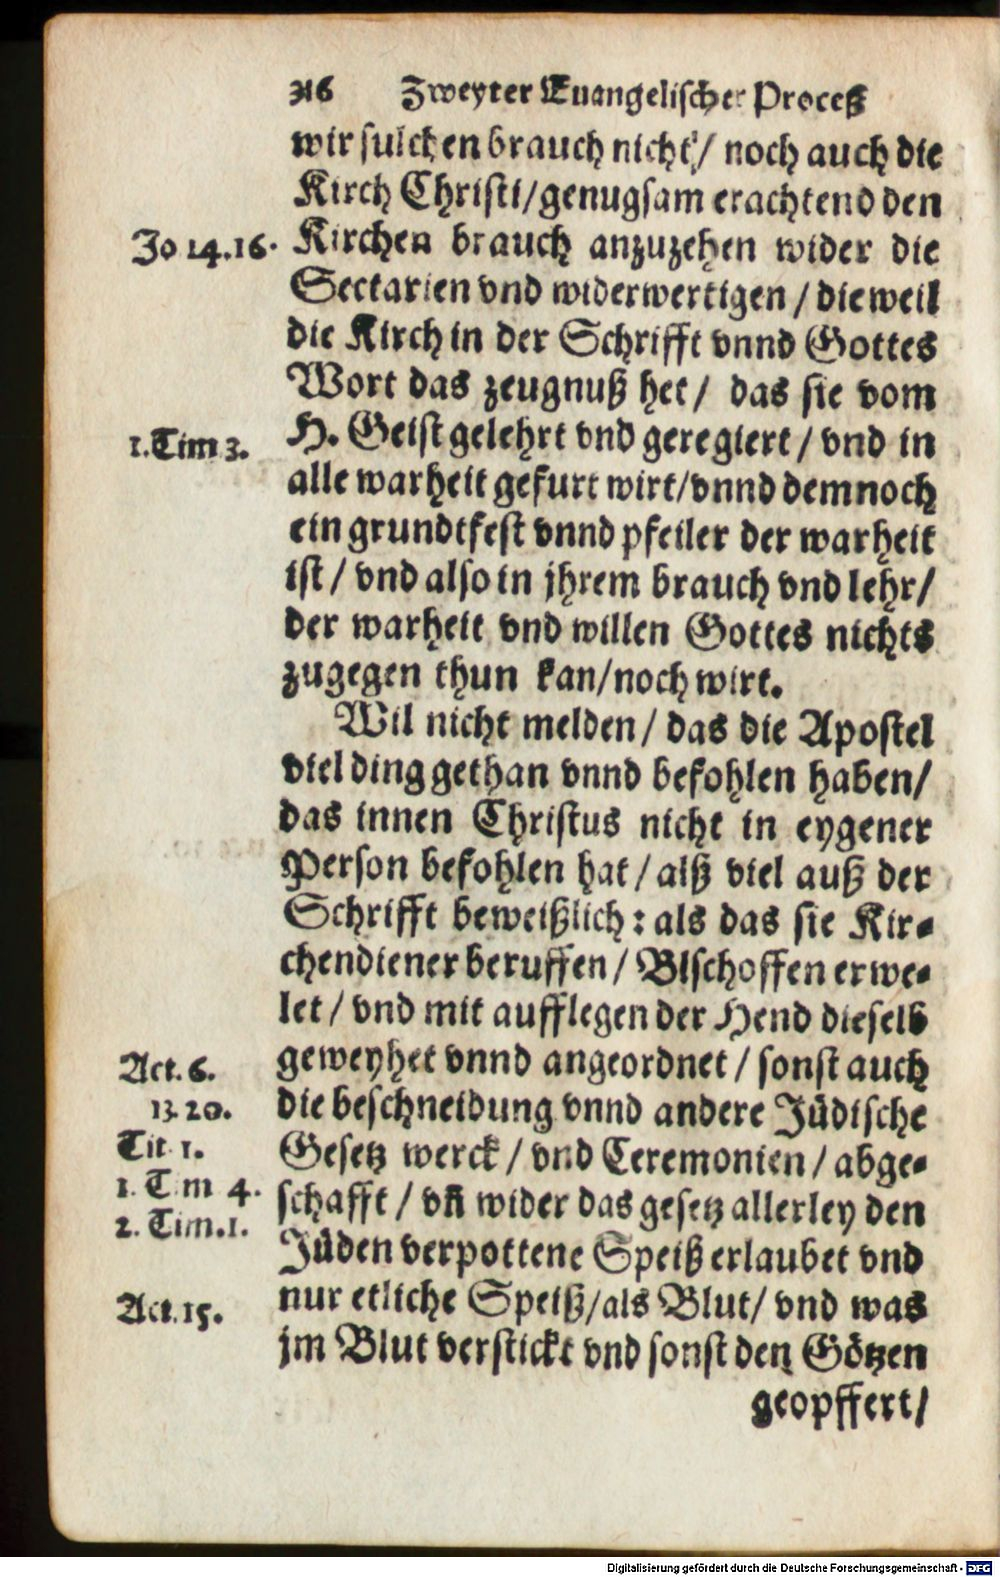 316 Zweyter Euangelischer Proceß
wir sulchen brauch nicht / noch auch die
Kirch Christi/genugsam erachtend den
Jo 14.16. Kirchen brauch anzuzehen wider die
Sectarien vnd widerwertigen / dieweil
die Kirch in der Schrifft vnnd Gottes
Wort das zeugnuß het / das sie vom
1.Tim 3. H. Geist gelehrt vnd geregiert / vnd in
alle warheit gefurt wirt/vnnd demnoch
ein grundtfest vnnd pfeiler der warheit
ist / vnd also in jhrem brauch vnd lehr/
der warheit vnd willen Gottes nichts
zugegen thun kan/noch wirt.
Wil nicht melden / das die Apostel
viel ding gethan vnnd befohlen haben/
das innen Christus nicht in eygener
Person befohlen hat / alß viel auß der
Schrifft beweißlich : als das sie Kir=
chendiener beruffen / Bischoffen erwe=
let / vnd mit aufflegen der Hend dieselb
Act. 6. geweyhet vnnd angeordnet / sonst auch
13. 20. die beschneidung vnnd andere Jüdische
Tit. 1. Gesetz werck / vnd Ceremonien / abge=
1. Tim 4. schafft / vñ wider das gesetz allerley den
2. Tim.1. Jüden verpottene Speiß erlaubet vnd
Act. 15. nur etliche Speiß/als Blut/ vnd was
jm Blut verstickt vnd sonst den Götzen
geopffert/
Digitalisierung gefördert durch die Deutsche Forschungsgemeinschaft - DFG